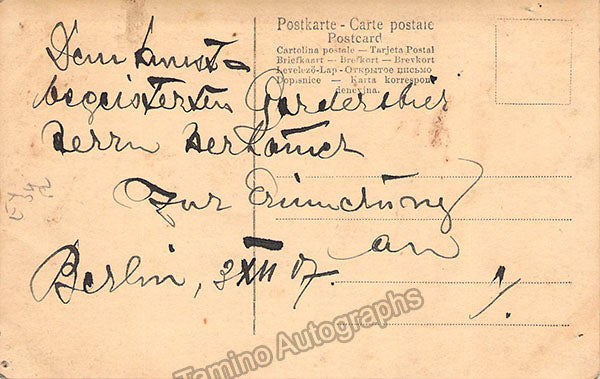 Postkarte - Carte postale
Postcard
Cartolina postale — Tarjeta Postal
Briefkaart — Brefkort — Brevkort
Levelező-Lap - Открытое письмо
Dopisnice — Karta korrespon
dencyjna.
Dem kunst-
begeisterten Garderobier
Herrn
Zur Erinnerung
an
Berlin, 3 XII 07.
Tamino Autographs